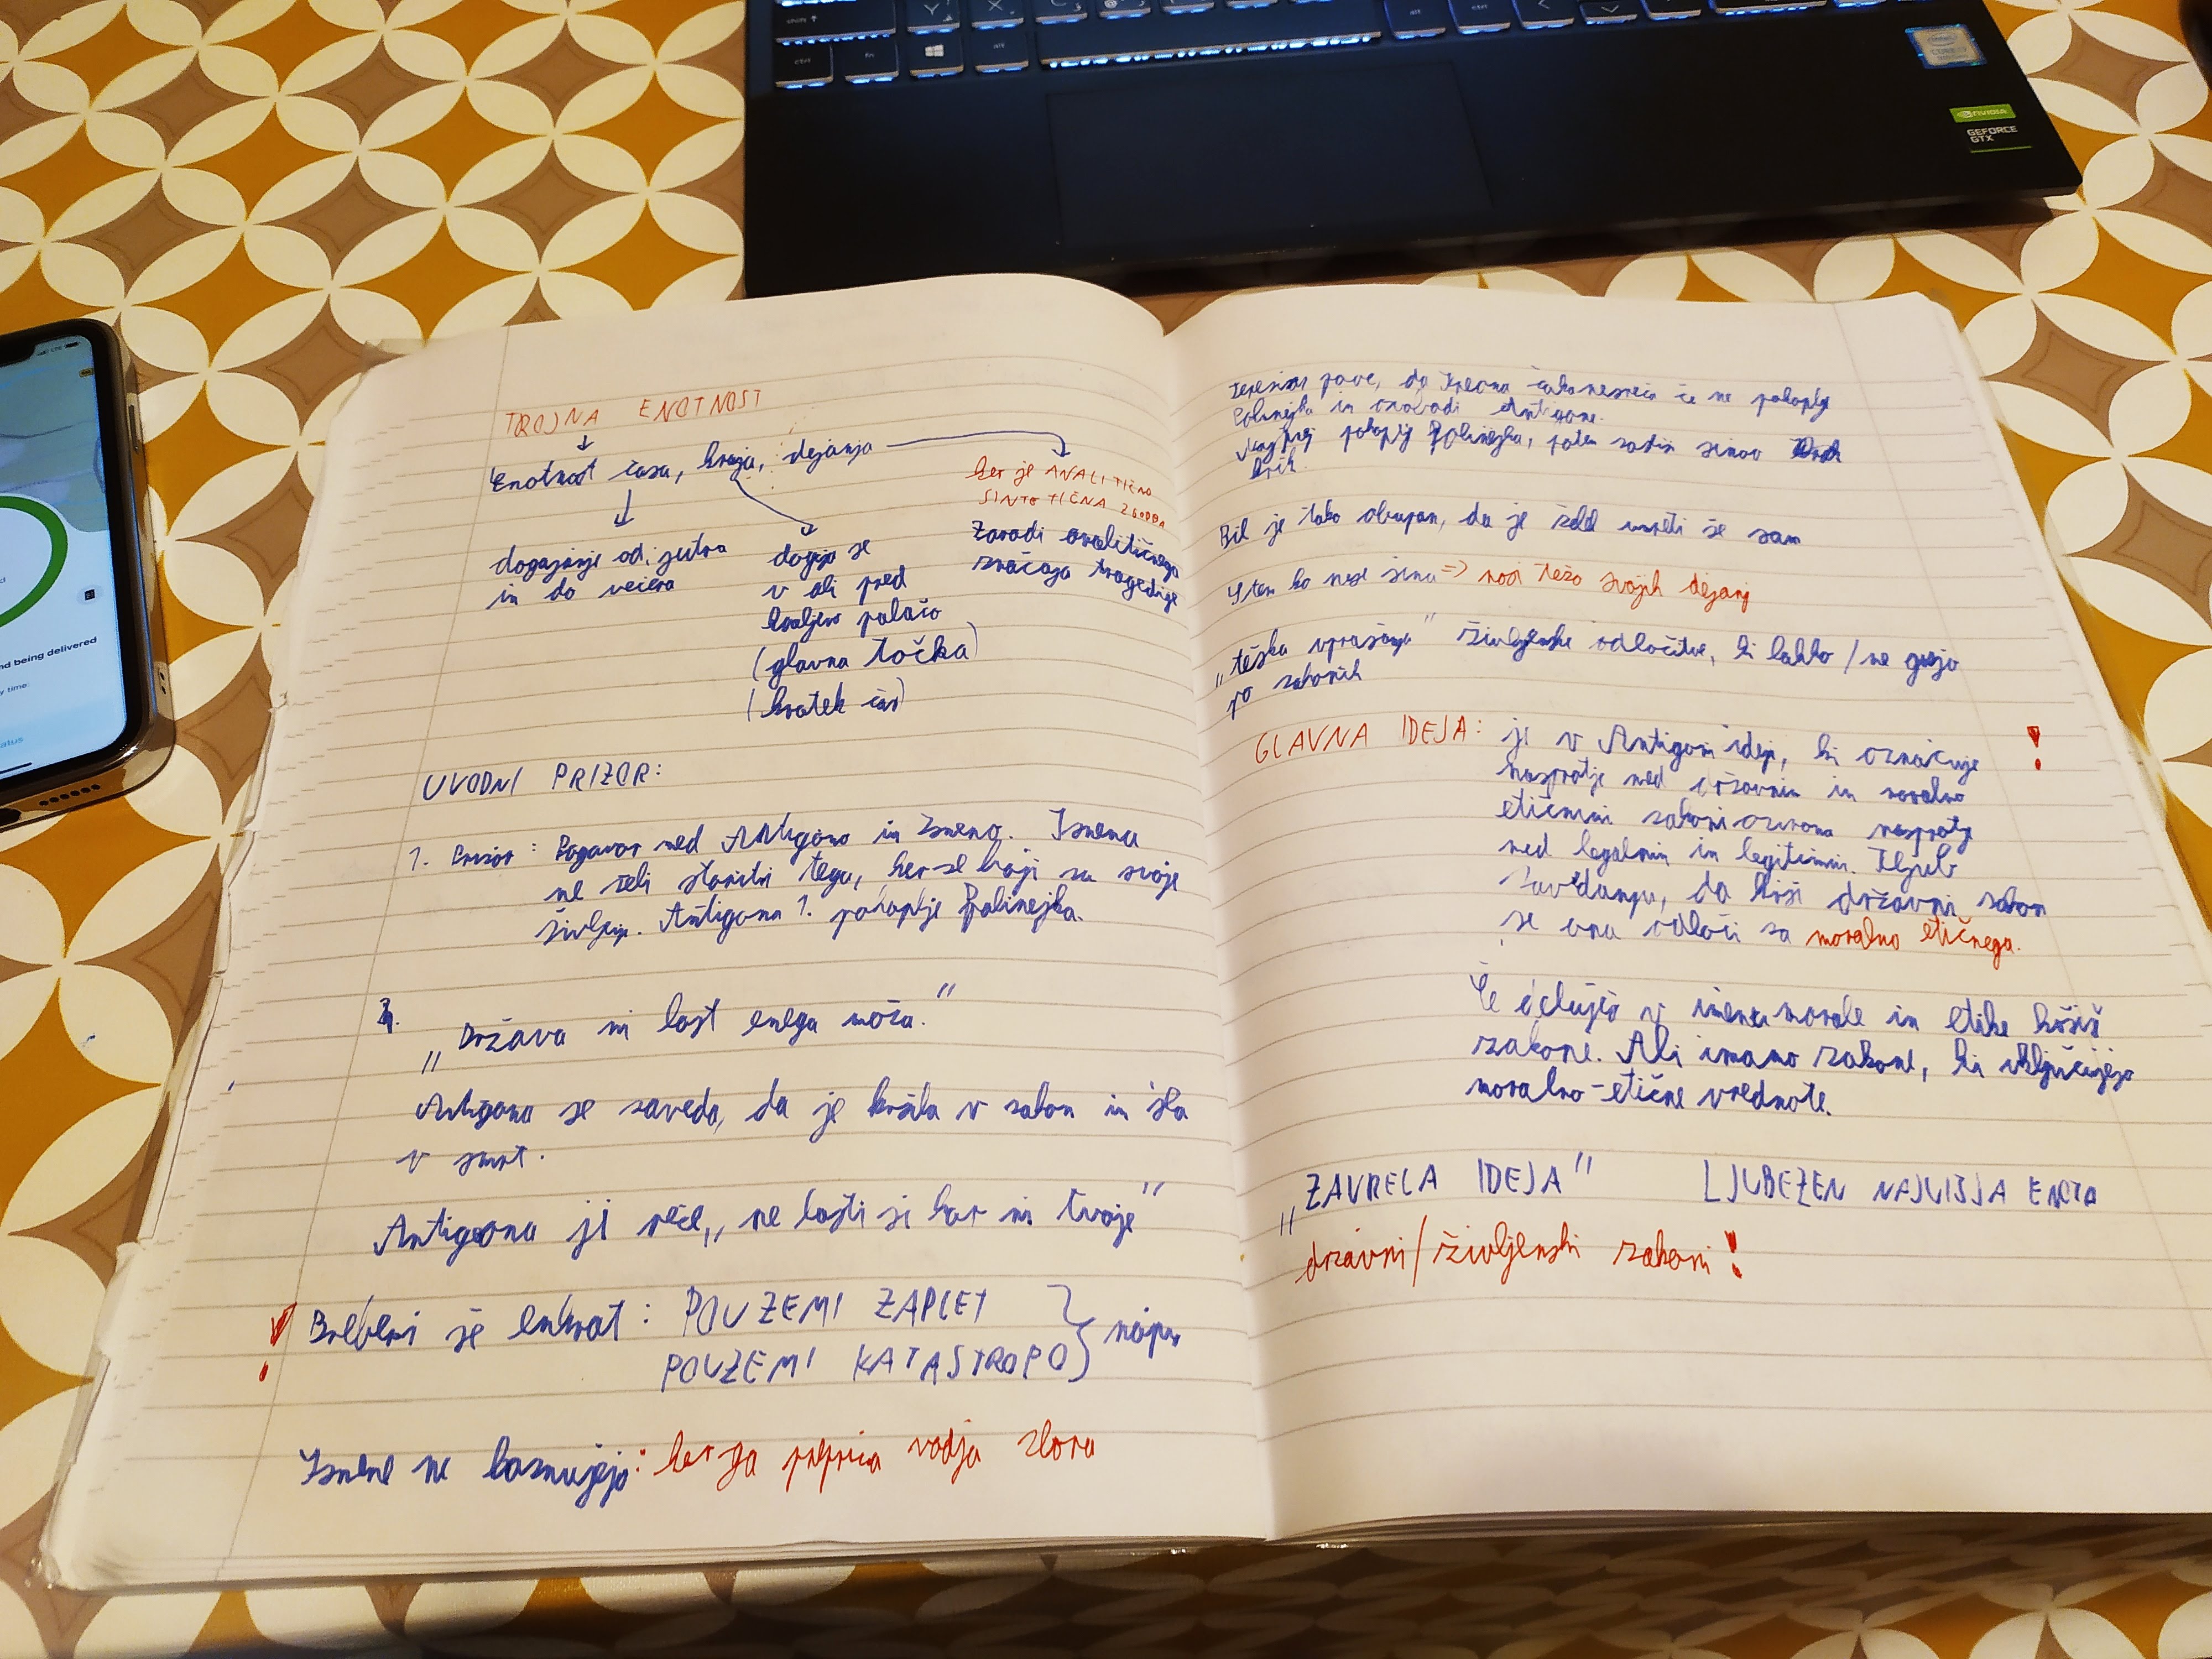 shift ↑
Y
X
C
ctrl
fn
alt
alt
ctrl
<
intel
CORE i7
NVIDIA
GEFORCE
GTX
nd being delivered
y time:
tatus
TROJNA ENOTNOST
Enotnost časa, kraja, dejanja
dogajanje od jutra
in do večera
dogaja se
v ali pred
kraljevo palačo
(glavna točka)
(kratek čas)
ker je ANALITIČNO
SINTETIČNA ZGODBA
Zaradi analitičnega
značaja tragedije
UVODNI PRIZOR:
1. Prizor: Pogovor med Antigono in Ismeno. Ismena
ne želi storiti tega, ker se boji za svoje
življenje. Antigona 1. pokoplje Polinejka.
„Država ni last enega moža."
Antigona se zaveda, da je kršila v zakon in šla
v smrt.
Antigona ji reče „ne lasti si kar ni tvoje"
! Preberi še enkrat: POVZEMI ZAPLET
POVZEMI KATASTROFO
Ismene ne kaznujejo: ker ga prepriča vodja zbora
pove, da Kreona čaka nesreča če ne pokoplje
Polinejka in osvobodi Antigone.
pokoplje Polinejka, potem
krik.
Bil je tako obupan, da je želel umreti še sam
S tem ko nese sina => nosi težo svojih dejanj
„težka vprašanja" življenjske odločitve, ki lahko / ne grejo
po zakonih
GLAVNA IDEJA: je v Antigoni ideja, ki označuje !
nasprotje med državnim in moralno
etičnimi zakoni oziroma nasprotje
med legalnim in legitimnim. Kljub
zavedanju, da krši državni zakon
se ona odloči za moralno etičnega.
Če deluješ v imenu morale in etike kršiš
zakone. Ali imamo zakone, ki vključujejo
moralno-etične vrednote.
„ZAVRELA IDEJA" LJUBEZEN NAJVIŠJA
državni/življenski zakoni!